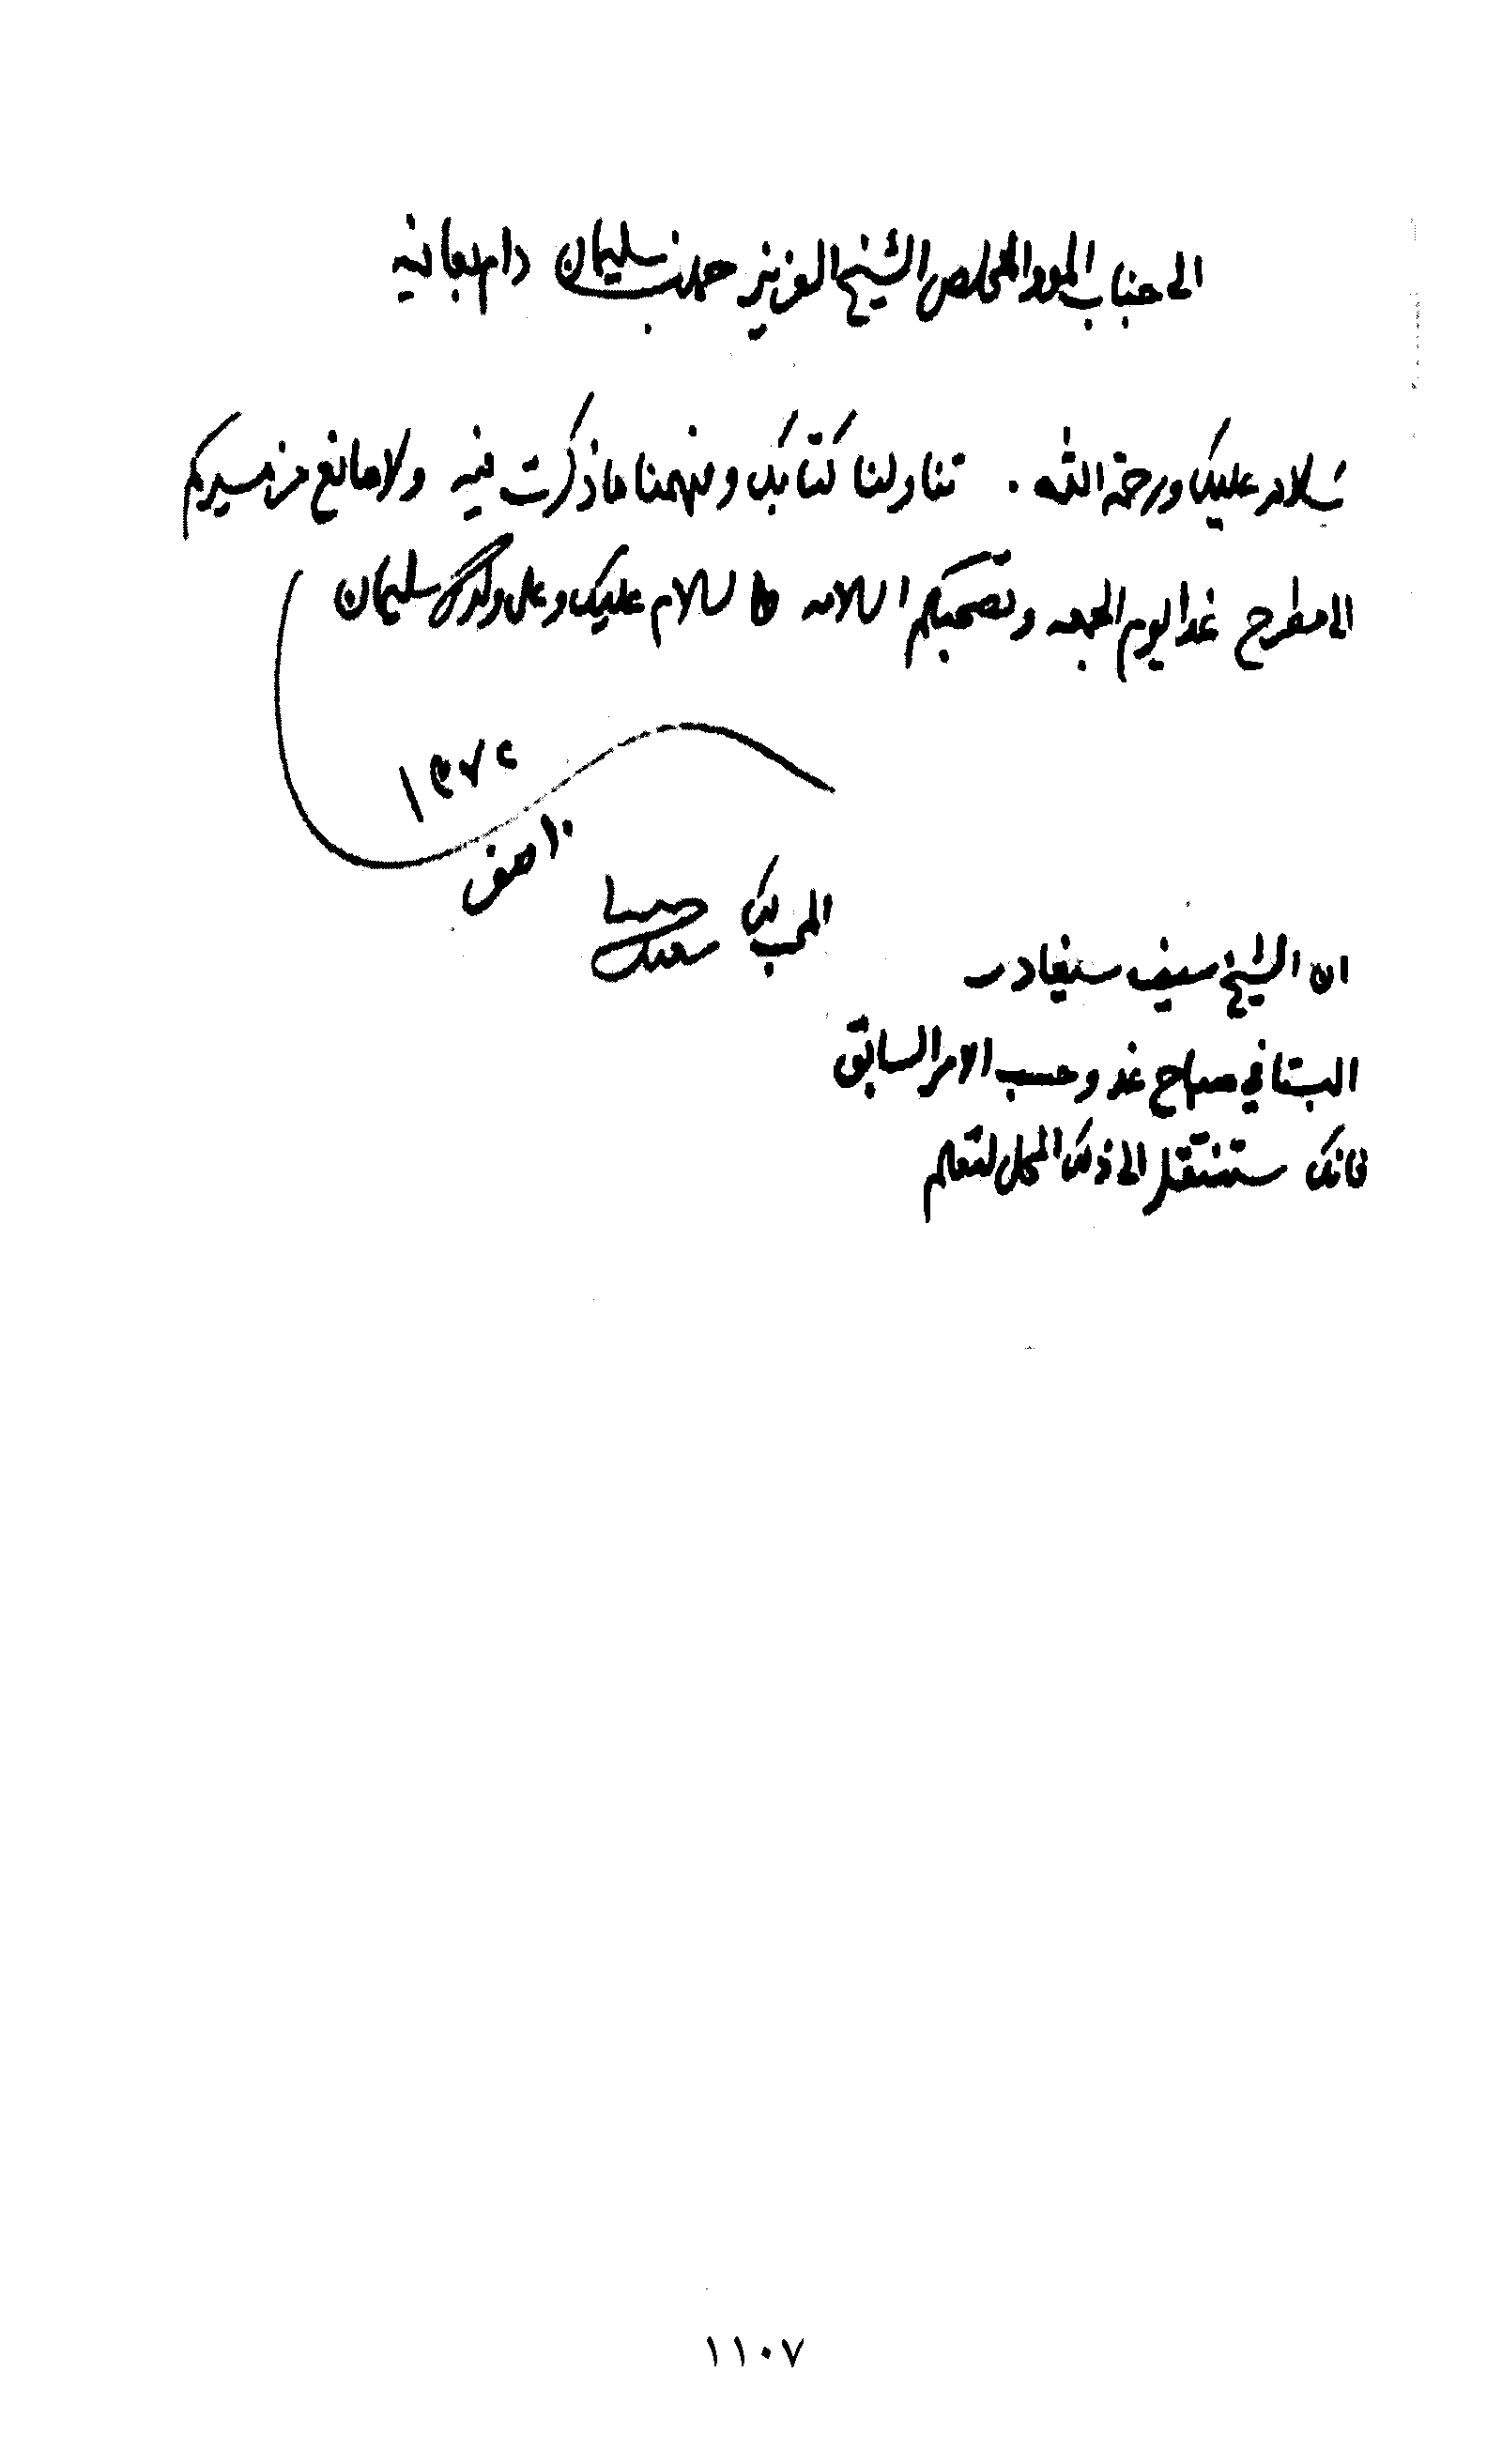 الى جناب المود المخلص الشيخ العزيز حمد بن سليمان دام بعافيه
سلام عليك ورحمة الله . تناولنا كتابك وفهمنا ماذكرت فيه ولا مانع من مسيركم
الى مطرح غدا يوم الجمعه وتصحبكم السلامه والسلام عليك وعلى ولدك سليمان
١٠ صفر
المحب لك
ان الشيخ سيف سيغادر
البستاني صباح غد وحسب الامر السابق
فانك ستنتقل الى ذلك المحل لتعلم
١١٠٧